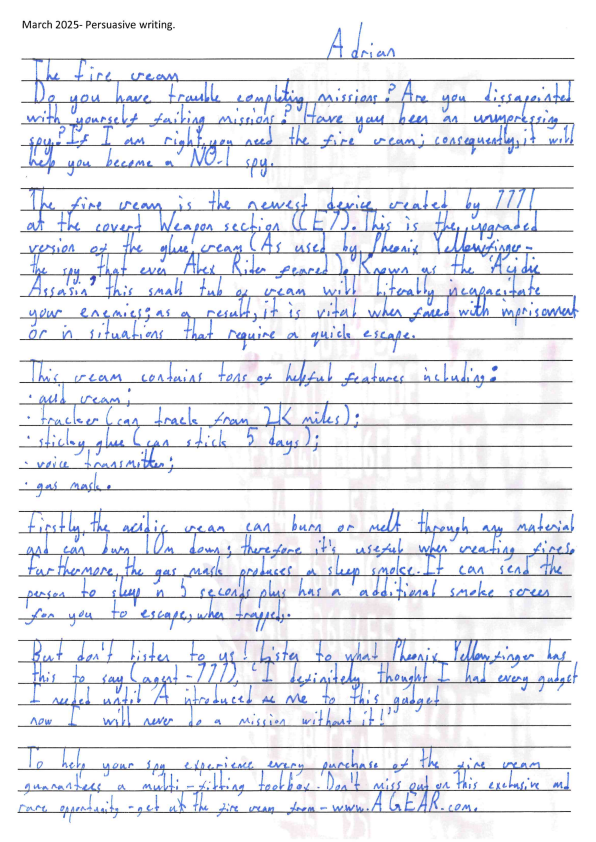 March 2025- Persuasive writing.
Adrian
The fire cream
Do you have trouble completing missions? Are you dissapointed
with yourself failing missions? Have you been an unimpressing
spy? If I am right, you need the fire cream; consequently, it will
help you become a NO.1 spy.
The fire cream is the newest device created by 777
at the covert Weapon section (CE7). This is the upgraded
version of the glue cream (As used by Pheonix Yellowfinger-
the spy that even Alex Rider feared). Known as the 'Acidic
Assasin,' this small tub of cream will literally incapacitate
your enemies; as a result, it is vital when faced with imprisoment
or in situations that require a quick escape.
This cream contains tons of helpful features including:
· acid cream;
· tracker (can track from 2K miles);
· sticky glue (can stick 5 days);
· voice transmitter;
· gas mask.
Firstly, the acidic cream can burn or melt through any material
and can burn 10m down; therefore it's useful when creating fires.
Furthermore, the gas mask produces a sleep smoke. It can send the
person to sleep n 5 seconds plus has a additional smoke screen
for you to escape, when trapped.
But don't listen to us! Listen to what Pheonix Yellowfinger has
this to say (agent-777), "I definitely thought I had every gadget
I needed until A introduced me to this gadget
now I will never do a mission without it!"
To help your spy experience every purchase of the fire cream
guarantees a multi-fitting toolbox. Don't miss out on this exclusive and
rare opportunity - get at the fire cream from - www.AGEAR.com.